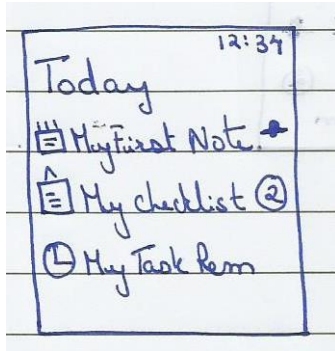 12:34
Today
My First Note.
My checklist 2
My Task Rem